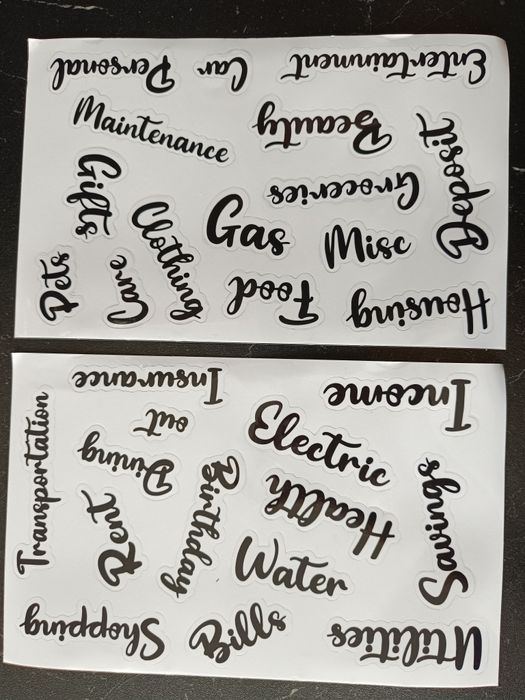 Personal
Car
Entertainment
Maintenance
Beauty
Deposit
Gifts
Groceries
Clothing
Gas
Misc
Pets
Care
Food
Housing
Insurance
Income
Transportation
out
Dining
Electric
Birthday
Health
Savings
Rent
Water
Shopping
Bills
Utilities